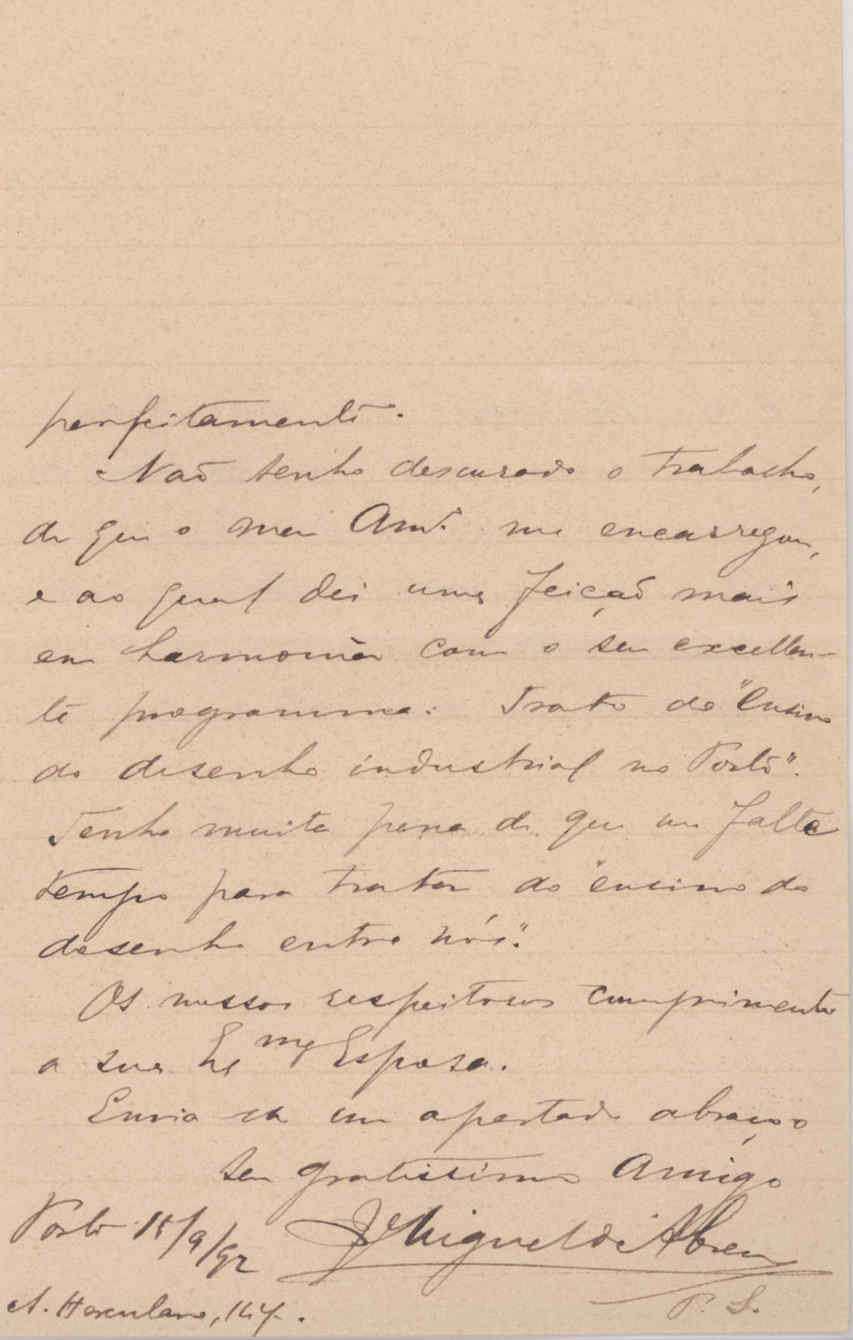 perfeitamente.
Não tenho descurado o trabalho,
de que o meu Am.º me encarregou,
e ao qual dei uma feição mais
em harmonia com o seu excellen-
te programma: Trato do "Ensino
do desenho industrial no Porto".
Tenho muita pena de que me falte
tempo para tratar do "ensino do
desenho entre nós".
Os nossos respeitosos cumprimentos
a sua Ex.ma Esposa.
Envia um apertado abraço
seu gratissimo Amigo
Porto 15/9/92 J Miguel de Abreu
A. Herculano,
P. S.